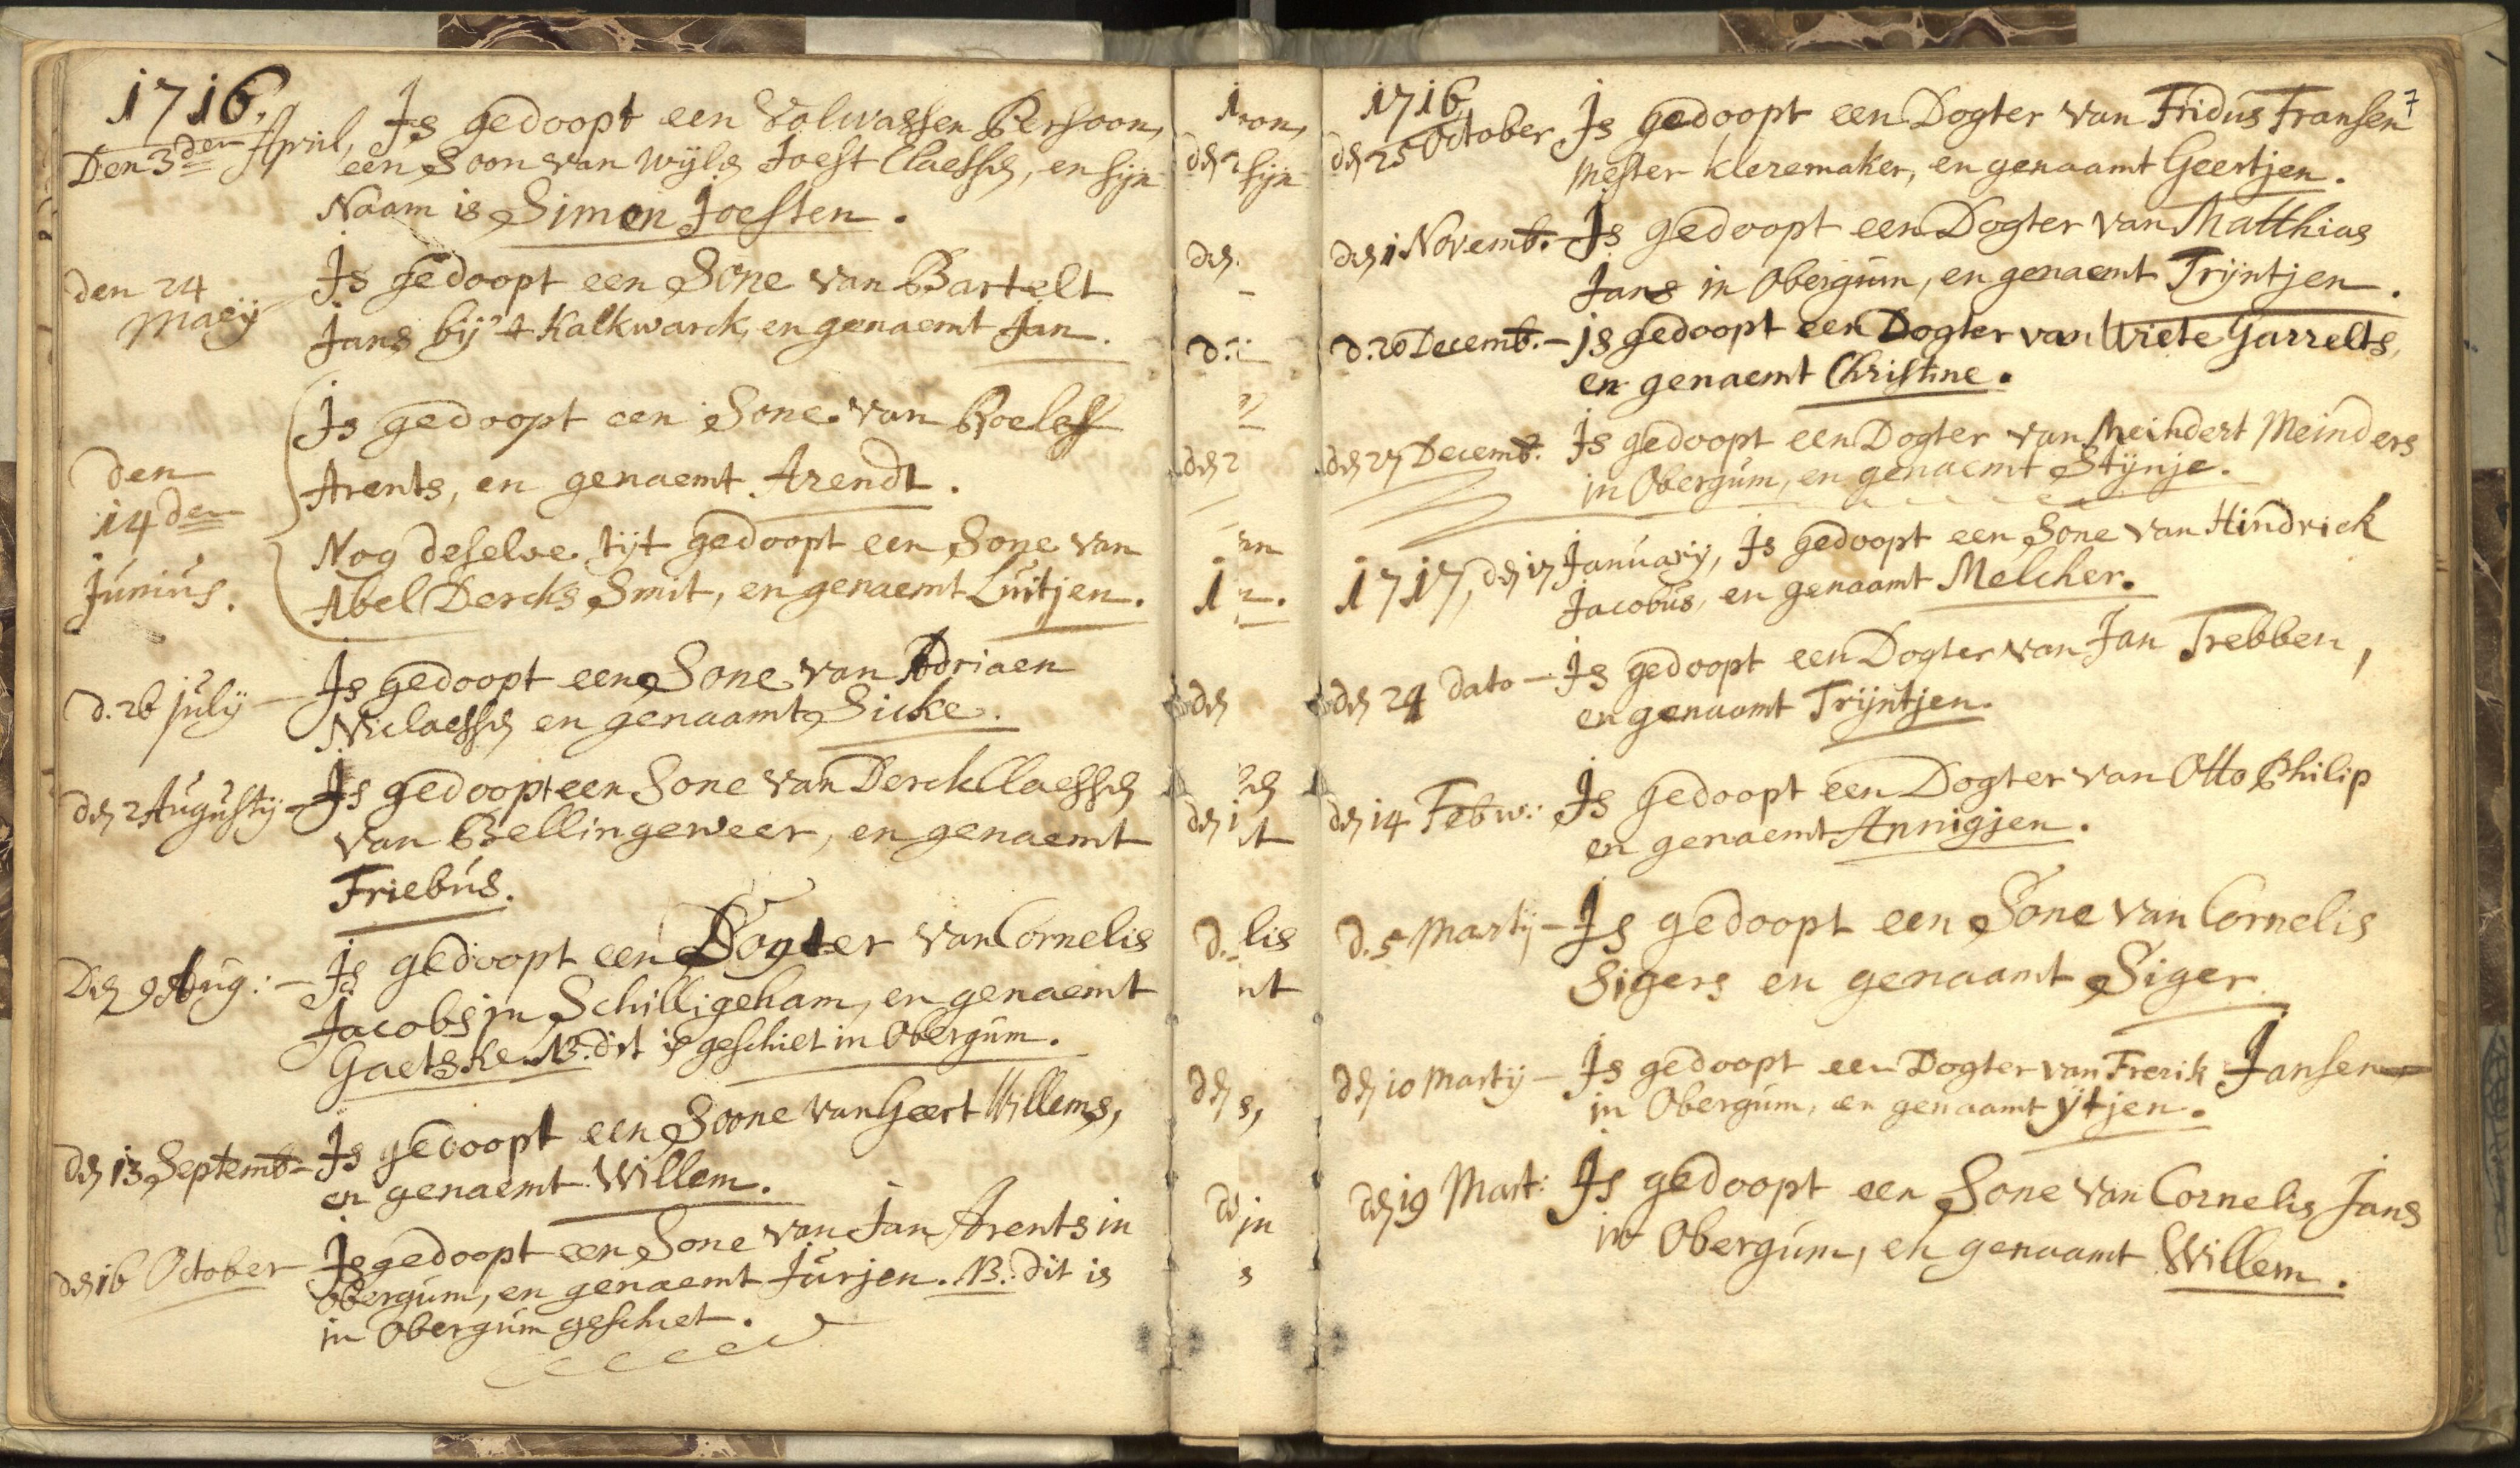 1716.
Den 3den April, Is gedoopt een Volwassen Persoon,
een Soon van wijls Joest Claessen, en sijn
Naam is Simon Joesten.
den 24 Is gedoopt een Sone van Bartelt
Maeij Jans bij 't Kalkwarck, en genaemt Jan.
Is gedoopt een Sone van Roeleff
den Arents, en genaemt Arendt.
14den Nog deselve tijt gedoopt een Sone van
Junius. Abel Dercks Smit, en genaemt Luitjen.
d. 26 julij - Is gedoopt een Sone van Adriaen
Niclaessen en genaamt Sicke.
den 2 Augustij - Is gedoopt een Sone van Derck Claessen
van Bellingeweer, en genaemt
Friebus.
Den 9 Aug: - Is gedoopt een Dogter van Cornelis
Jacobs in Schilligeham, en genaemt
Gaetske. NB. dit is geschiet in Obergum.
den 13 Septemb - Is gedoopt een Soone van Geert Willems,
en genaemt Willem.
den 16 October Is gedoopt een Sone van Jan Arents in
Obergum, en genaemt Jurjen. NB: dit is
in Obergum geschiet.
1716 7
den 25 October Is gedoopt een Dogter van Fridus Fransen
Mester kleremaker, en genaamt Geertjen.
den 1 Novemb. - Is gedoopt een Dogter van Matthias
Jans in Obergum, en genaemt Trijntjen.
d. 20 Decemb. - Is gedoopt een Dogter van Wiete Garrelts,
en genaemt Christine.
den 27 Decemb. Is gedoopt een Dogter van Meindert Meinders
in Obergum, en genaemt Stijnje.
1717, den 17 Januarij, Is gedoopt een Sone van Hindrick
Jacobus, en genaamt Melcher.
den 24 dato - Is gedoopt een Dogter van Jan Trebben,
en genaamt Trijntjen.
den 14 Febru: Is gedoopt een Dogter van Otto Philip
en genaemt Annigjen.
d. 5 Martij - Is gedoopt een Sone van Cornelis
Sigers en genaamt Siger.
den 10 Martij - Is gedoopt een Dogter van Frerik Jansen
in Obergum, en genaamt ijtjen.
den 19 Mart: Is gedoopt een Sone van Cornelis Jans
in Obergum, en genaamt Willem.